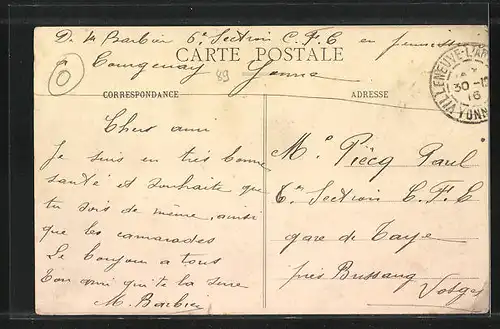 De M Barbier 6e Section C.F.C en permission
CARTE POSTALE
Courgenay Yonne
89
CORRESPONDANCE
ADRESSE
VILLENEUVE-L'AR
30-1
16
YONNE
Chers ami
Je suis en très bonne
santé et souhaite que
tu sois de même, ainsi
que les camarades
Le bonjour a tous
Ton ami qui te la serre
M. Barbier
Mr Piecq Paul
6e Section C.F.C
gare de Taye
près Bussang
Vosges